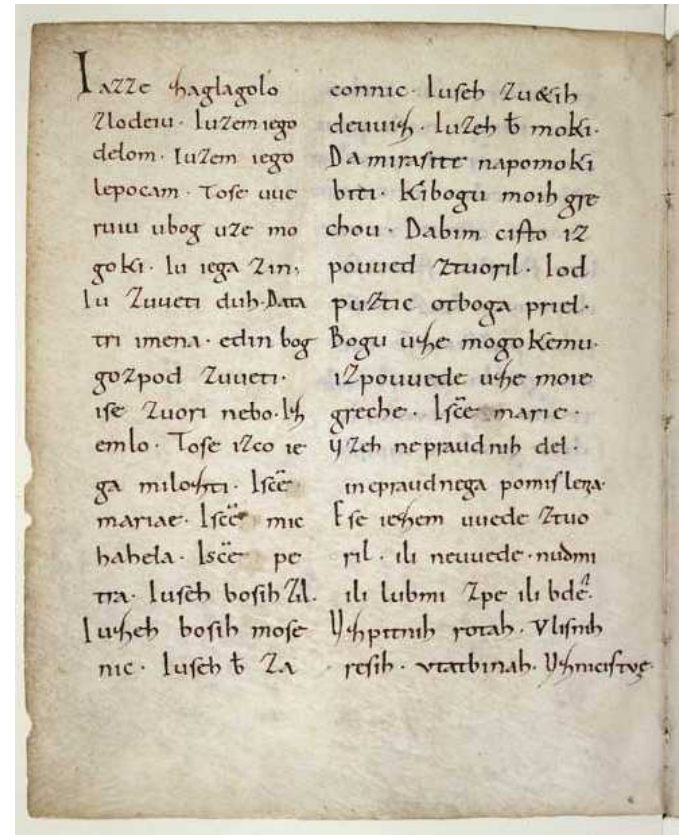 Iazze zaglagolo
zlodeiu. Iuzem iego
delom. Iuzem iego
lepocam. Tose uue
ruiu ubog uze mo
goki. Iu iega zin;
Iu zuueti duh. Data
tri imena. edin bog
gozpod zuueti.
ise zuori nebo. Iz
emlo. Tose izco ie
ga milozti. Iscē
mariae. Iscē mic
hahela. Iscē pe
tra. Iuseh bosih zil.
Iuzeh bosih mose
nic. Iuseh b̄ za
connic. Iuseh zu&ih
deuuiz. Iuzeh b̄ moki.
Da mirasite napomoki
biti. Kibogu moih gre
chou. Dabim cisto iz
pouued ztuoril. Iod
puztic otboga priel.
Bogu uze mogokemu.
izpouuede uze moie
greche. Iscē marie.
Vzeh nepraudnih del.
inepraudnega pomislena.
Ese iezem uuede ztuo
ril. ili neuuede. nudmi
ili lubmi zpe ili bdē.
Vzpitnih rotah. Vlisnih
resih. vtatbinah. Vznicistuę.